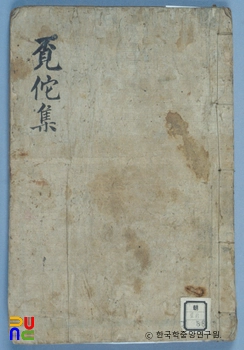 覔佗集
© 한국학중앙연구원